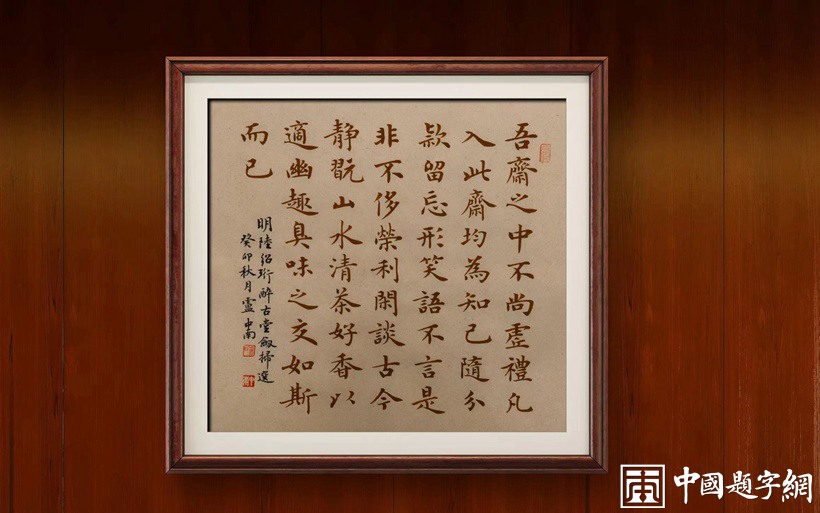 吾齋之中不尚虛禮凡
入此齋均為知己隨分
款留忘形笑語不言是
非不侈榮利閑談古今
靜翫山水清茶好香以
適幽趣臭味之交如斯
而已
明陸紹珩醉古堂劍掃選
癸卯秋月盧中南
中國題字網